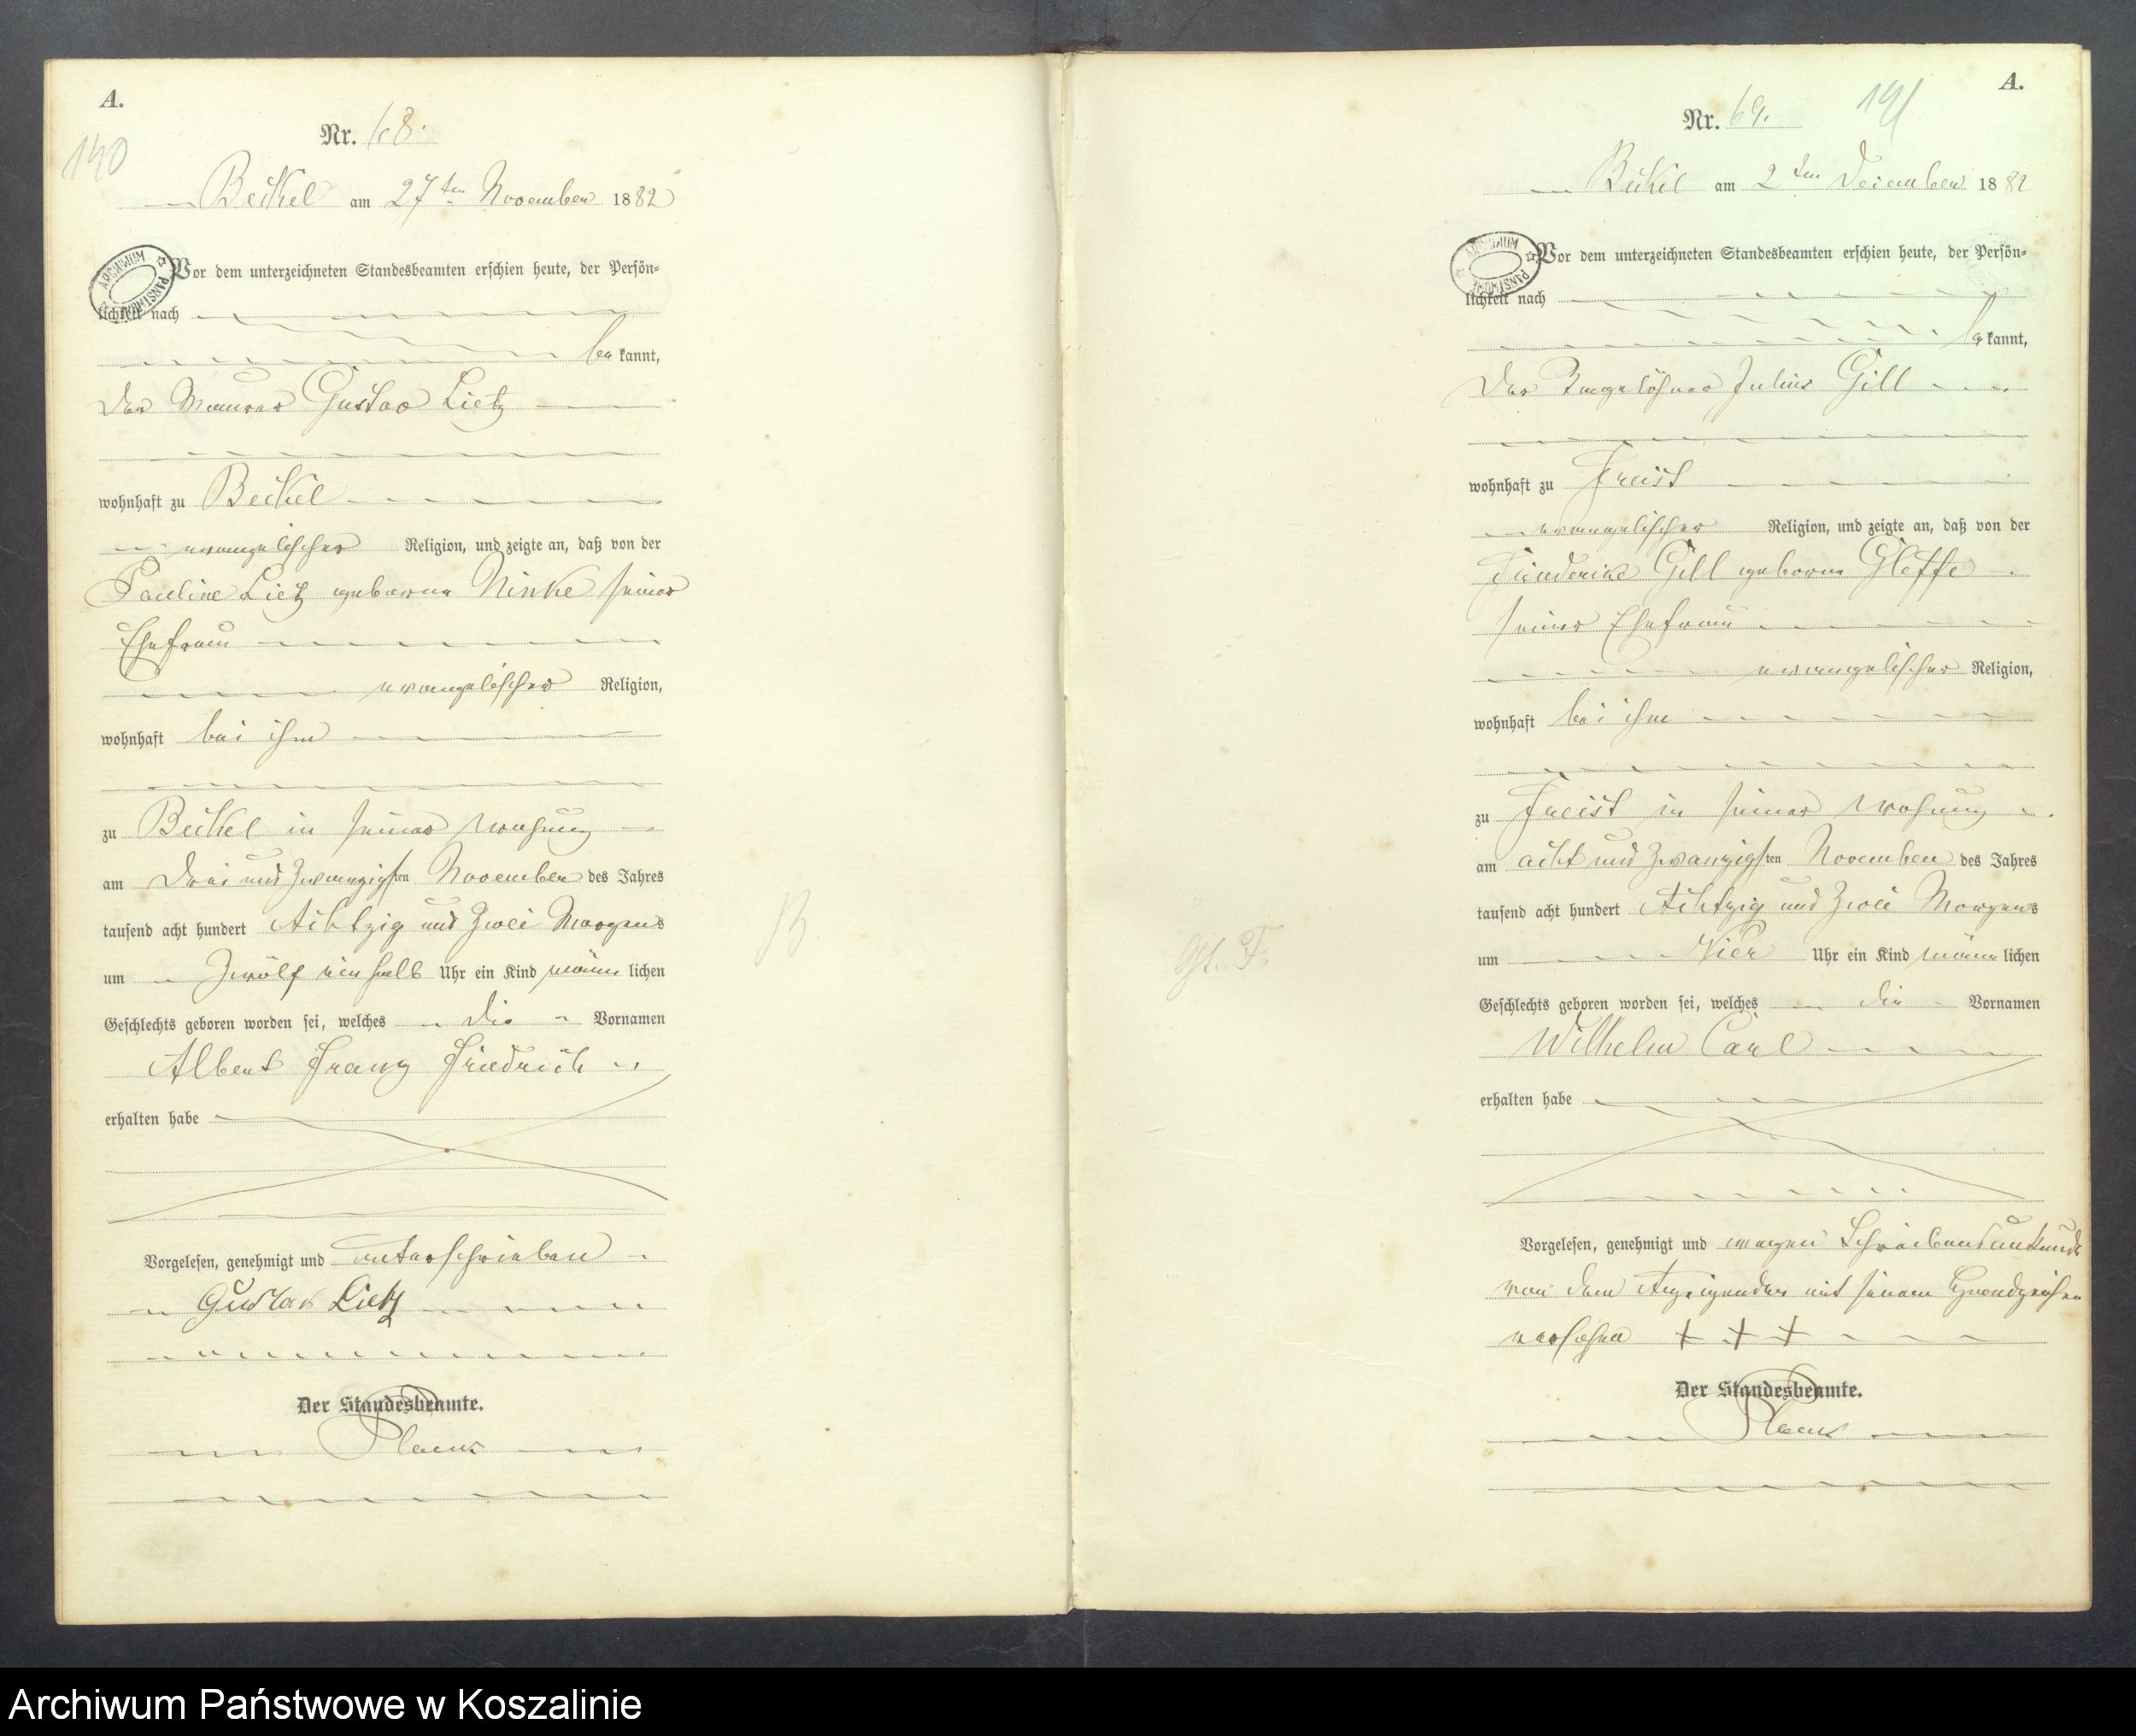 A.
140
Nr. 68.
Beckel am 27ten November 1882
ARCHIWUM PAŃSTWOWE
Vor dem unterzeichneten Standesbeamten erschien heute, der Persön-
lichkeit nach
be kannt,
der Maurer Gustav Lietz
wohnhaft zu Beckel
evangelischer Religion, und zeigte an, daß von der
Pauline Lietz geborne Ninke seiner
Ehefrau
evangelischer Religion,
wohnhaft bei ihm
zu Beckel in seiner Wohnung
am drei und zwanzigsten November des Jahres
tausend acht hundert Achtzig und Zwei Morgens
um Zwölf ein halb Uhr ein Kind männ lichen
Geschlechts geboren worden sei, welches die Vornamen
Albert Franz Friedrich
erhalten habe
Vorgelesen, genehmigt und unterschrieben
Gustav Lietz
Der Standesbeamte.
B
A.
191
Nr. 69.
Beckel am 2ten December 1882
ARCHIWUM PAŃSTWOWE
Vor dem unterzeichneten Standesbeamten erschien heute, der Persön-
lichkeit nach
be kannt,
der Tagelöhner Julius Gill
wohnhaft zu Freist
evangelischer Religion, und zeigte an, daß von der
Friederike Gill geborne Gleffe
seiner Ehefrau
evangelischer Religion,
wohnhaft bei ihm
zu Freist in seiner Wohnung
am acht und zwanzigsten November des Jahres
tausend acht hundert Achtzig und Zwei Morgens
um Vier Uhr ein Kind männ lichen
Geschlechts geboren worden sei, welches die Vornamen
Wilhelm Carl
erhalten habe
Vorgelesen, genehmigt und wegen Schreibensunkunde
von dem Anzeigenden mit seinem Handzeichen
versehen + + +
Der Standesbeamte.
Archiwum Państwowe w Koszalinie